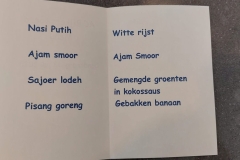 Nasi Putih
Ajam smoor
Sajoer lodeh
Pisang goreng
Witte rijst
Ajam Smoor
Gemengde groenten
in kokossaus
Gebakken banaan